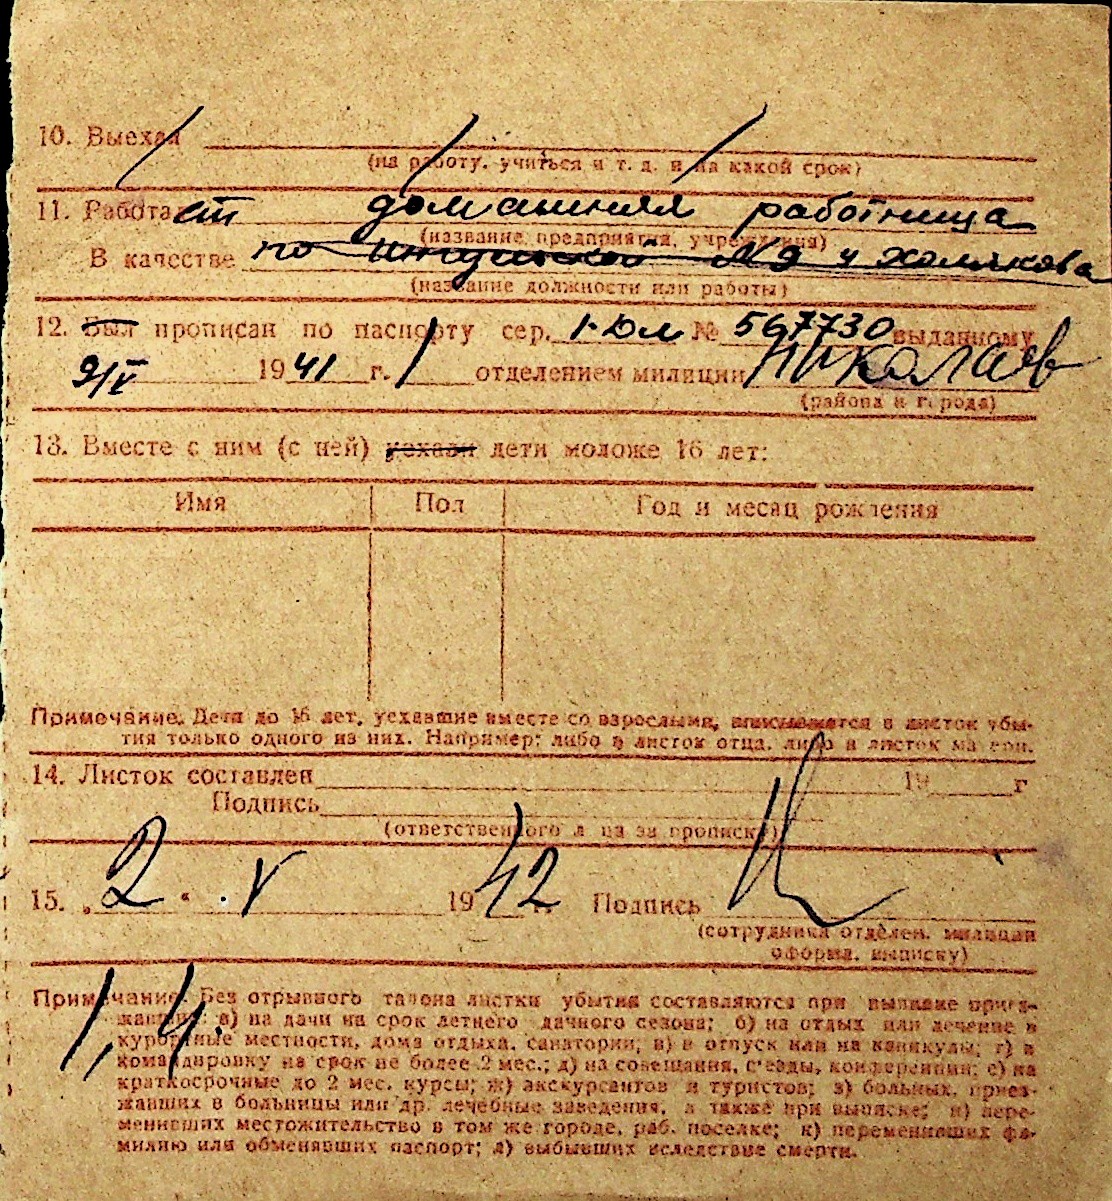 10. Выехал
(на работу, учиться и т. д. и на какой срок)
11. Работает домашняя работница
(название предприятия, учреждения)
В качестве по № 9 у Холякова
(название должности или работы)
12. Был прописан по паспорту сер. 1-Юл № 567730 выданному
9/V 1941 г. 1 отделением милиции Николаев
(района и города)
13. Вместе с ним (с ней) уехали дети моложе 16 лет:
Имя Пол Год и месяц рождения
Примечание. Дети до 16 лет, уехавшие вместе со взрослыми, вписываются в листок убы-
тия только одного из них. Например: либо в листок отца, либо в листок матери.
14. Листок составлен 19 г
Подпись
(ответственного лица за прописку)
15. „2“ V 1942 г. Подпись
(сотрудника отделен. милиции
оформл. выписку)
1,4.
Примечание. Без отрывного талона листки убытия составляются при выписке приез-
жавших: а) на дачи на срок летнего дачного сезона; б) на отдых или лечение в
курортные местности, дома отдыха, санатории; в) в отпуск или на каникулы; г) в
командировку на срок не более 2 мес.; д) на совещания, с'езды, конференции; е) на
краткосрочные до 2 мес. курсы; ж) экскурсантов и туристов; з) больных, приез-
жавших в больницы или др. лечебные заведения, а также при выписке; и) пере-
менивших местожительство в том же городе, раб. поселке; к) переменивших фа-
милию или обменявших паспорт; л) выбывших вследствие смерти.